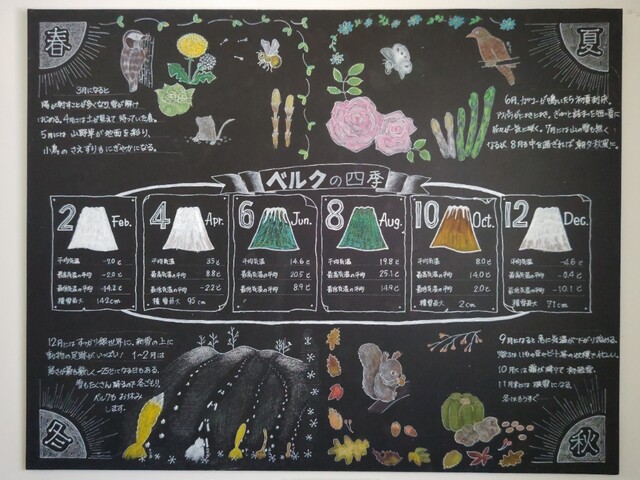 春
夏
3月になると
陽が射すことが多くなり雪が解け
はじめる。4月には土が見えて 帰ってい春。
5月には 山野草が地面を彩り、
小鳥の さえずりもにぎやかになる。
6月、カッコーが鳴いたら初夏到来。
アスパラが
一気に咲く。7月には山の雪も無く
なる。8月も中を過ぎれば 朝夕秋風に。
ベルクの四季
2 Feb.
平均気温 -7.0℃
最高気温の平均 -2.0℃
最低気温の平均 -14.2℃
積雪最大 142cm
4 Apr.
平均気温 3.5℃
最高気温の平均 8.8℃
最低気温の平均 -2.2℃
積雪最大 95cm
6 Jun.
平均気温 14.6℃
最高気温の平均 20.5℃
最低気温の平均 8.9℃
8 Aug.
平均気温 19.8℃
最高気温の平均 25.1℃
最低気温の平均 14.9℃
10 Oct.
平均気温 8.0℃
最高気温の平均 14.0℃
最低気温の平均 2.0℃
積雪最大 2cm
12 Dec.
平均気温 -4.6℃
最高気温の平均 -0.4℃
最低気温の平均 -10.1℃
積雪最大 71cm
12月にはすっかり銀世界に、新雪の上に
動物の足跡がいっぱい! 1~2月は
寒さが最も厳しく-25℃になる日もある。
雪もたくさん降る
ベルクもお休み
します。
9月になると 急に気温が下がり始める。
10月には霜が降りて 初
11月末には 根雪になる
冬はもうすぐ
冬
秋